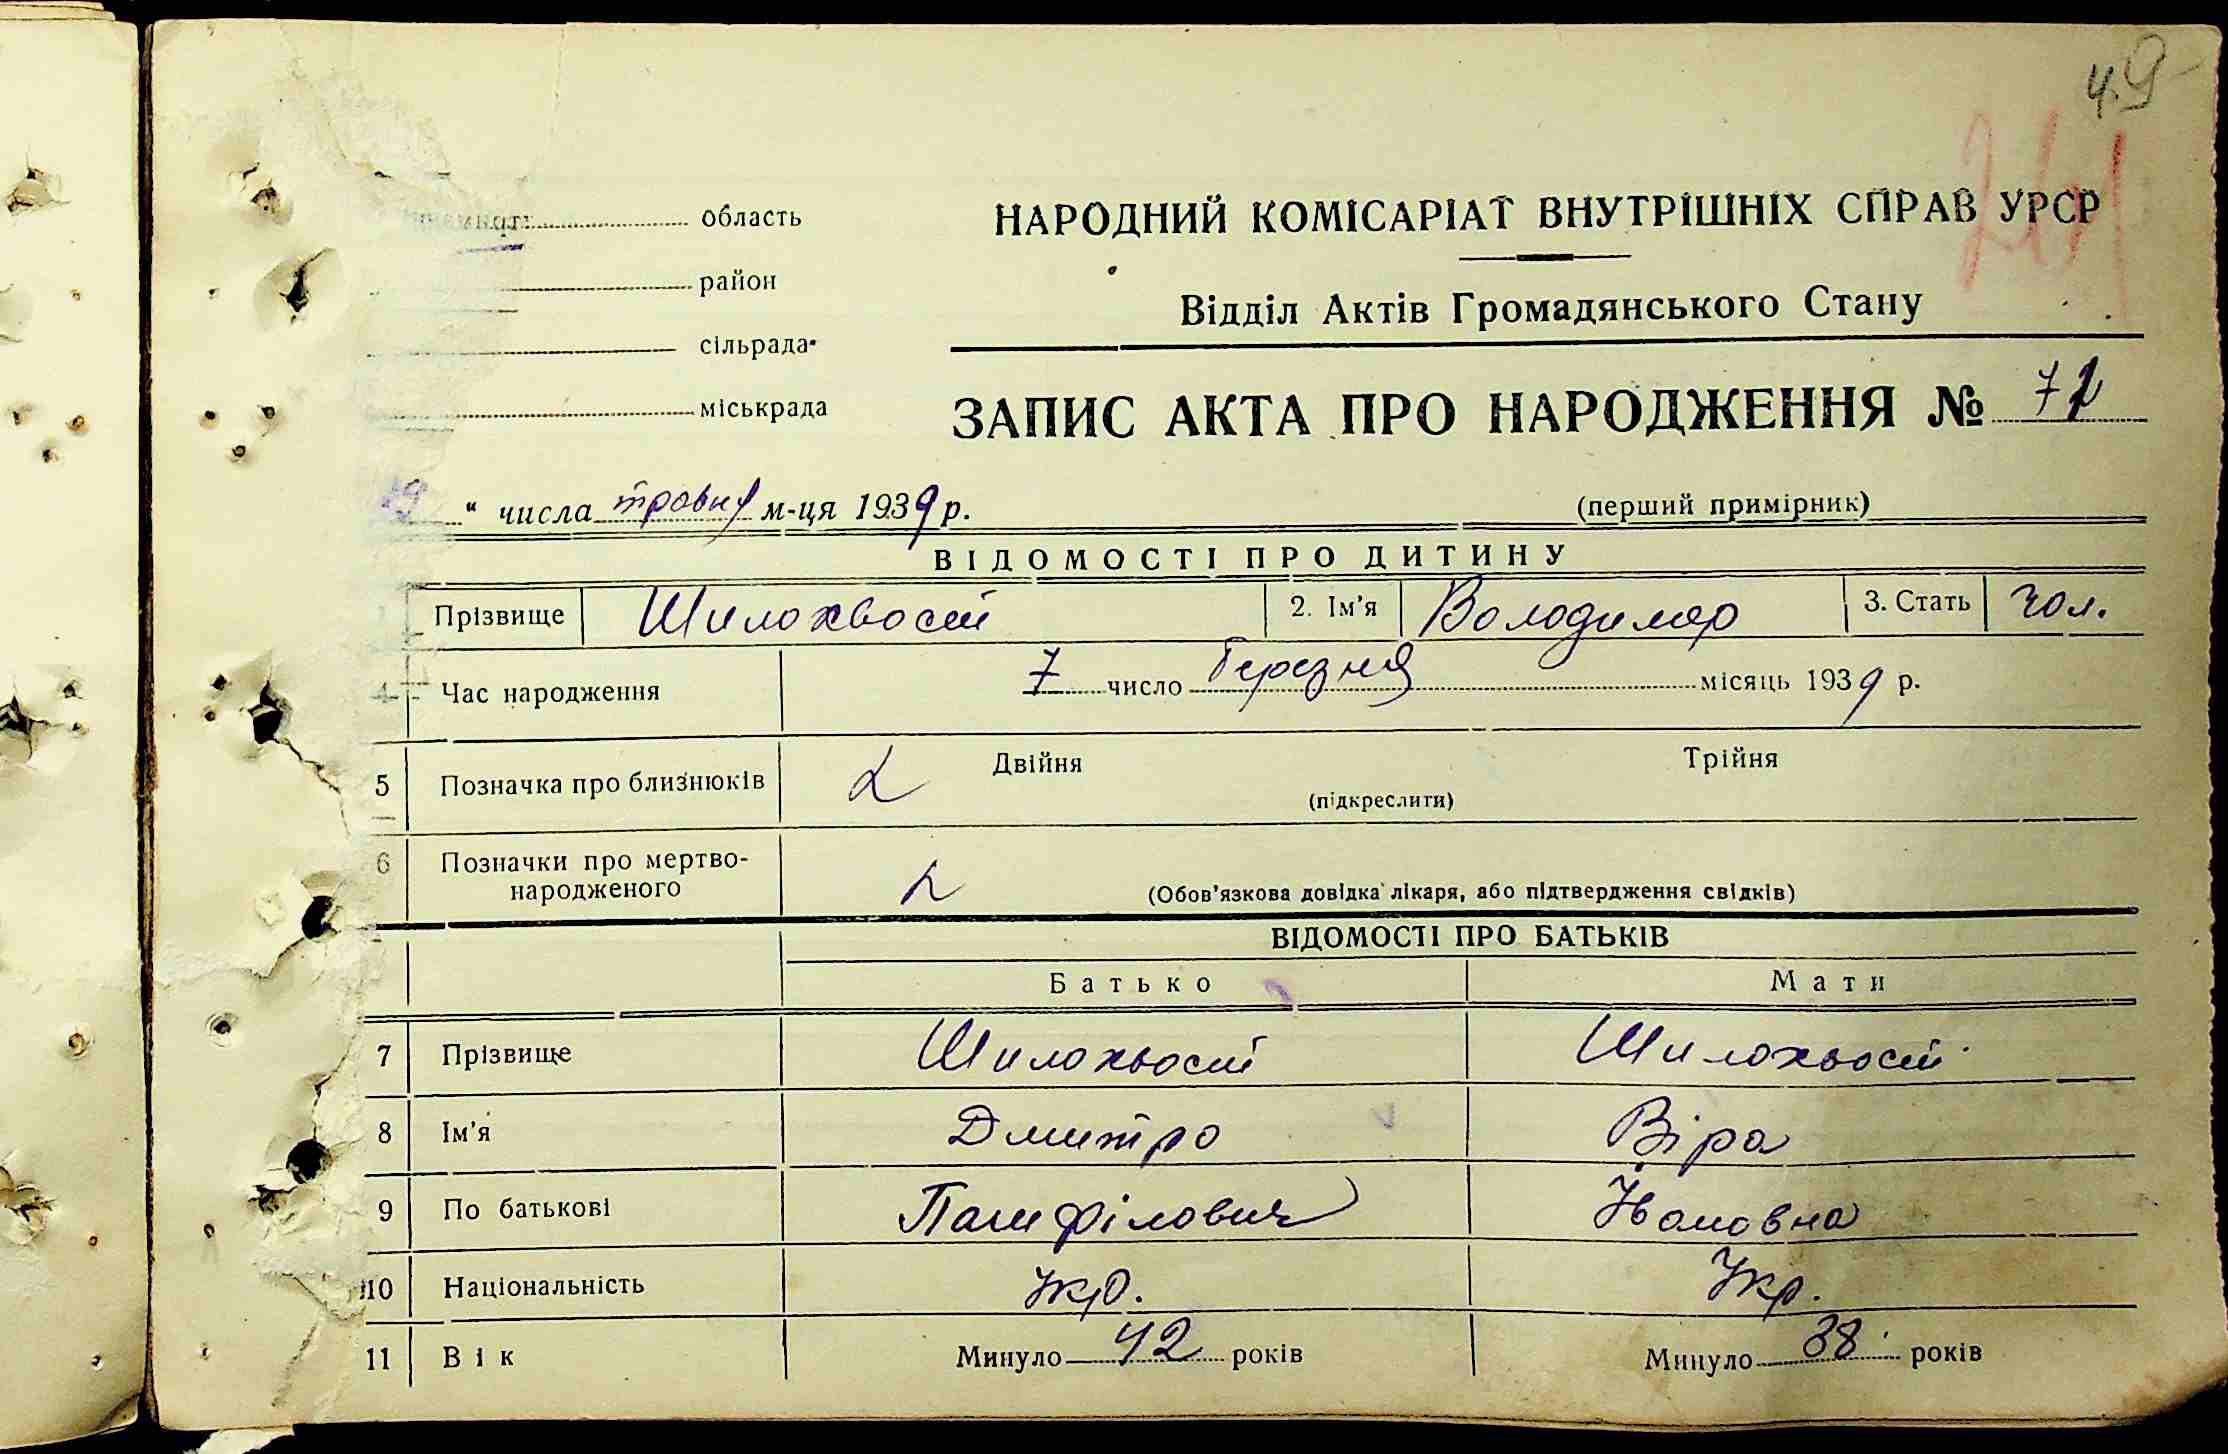 49
область
НАРОДНИЙ КОМІСАРІАТ ВНУТРІШНІХ СПРАВ УРСР
район
Відділ Актів Громадянського Стану
сільрада
міськрада
ЗАПИС АКТА ПРО НАРОДЖЕННЯ № 72
19 " числа травня м-ця 1939 р.
(перший примірник)
ВІДОМОСТІ ПРО ДИТИНУ
Прізвище Шилохвост 2. Ім'я Володимер 3. Стать чол.
4 Час народження 7 число Березня місяць 1939 р.
5 Позначка про близнюків Двійня Трійня
(підкреслити)
6 Позначки про мертво-
народженого (Обов'язкова довідка лікаря, або підтвердження свідків)
ВІДОМОСТІ ПРО БАТЬКІВ
Батько Мати
7 Прізвище Шилохвост Шилохвост
8 Ім'я Дмитро Віра
9 По батькові Памфілович Йвановна
10 Національність Укр. Укр.
11 Вік Минуло 42 років Минуло 38 років